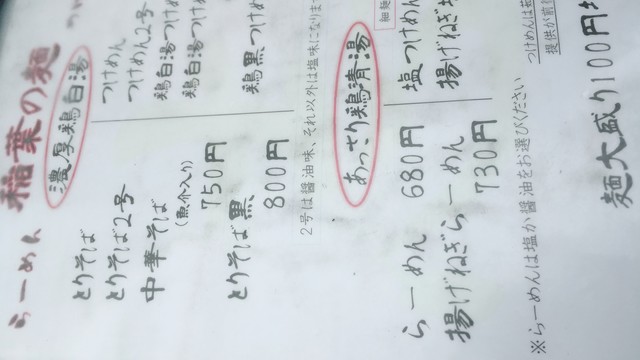 らーめん 稲葉の麺
濃厚鶏白湯
とりそば つけめん
とりそば2号 つけめん2号
中華そば 鶏白湯つけめ
(魚介入り) 鶏白湯つけ
750円
とりそば黒 鶏黒つけめ
800円
2号は醤油味、それ以外は塩味になりま
あっさり鶏清湯
細麺
らーめん 680円 塩つけめん
揚げねぎらーめん 730円 揚げねぎ
※らーめんは塩か醤油をお選びください
つけめんは
提供が前
麺大盛り100円